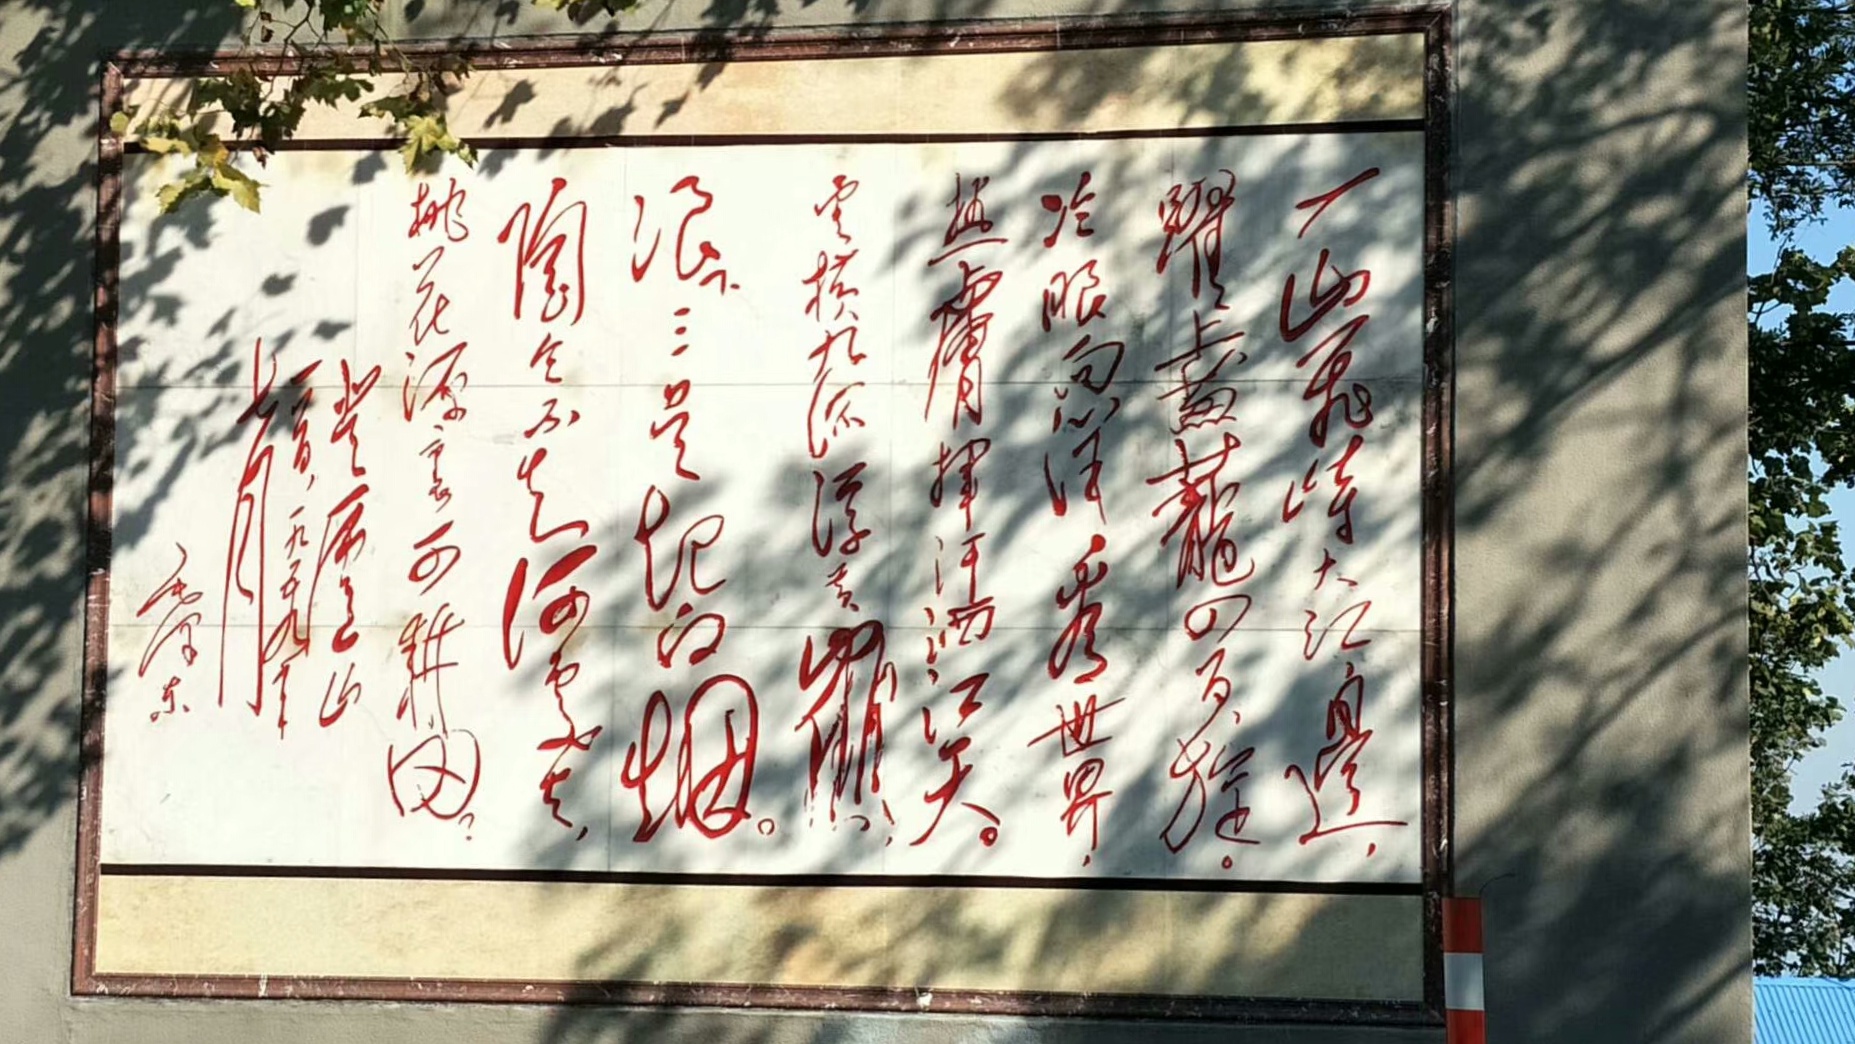 一山飛峙大江邊,
躍上葱蘢四百旋。
冷眼向洋看世界,
热膚揮汗洒江天。
雲横九派浮黄鶴,
浪下三吴起白烟。
陶令不知何處去,
桃花源裏可耕田?
登廬山
一首,一九五九年
七月
毛泽东